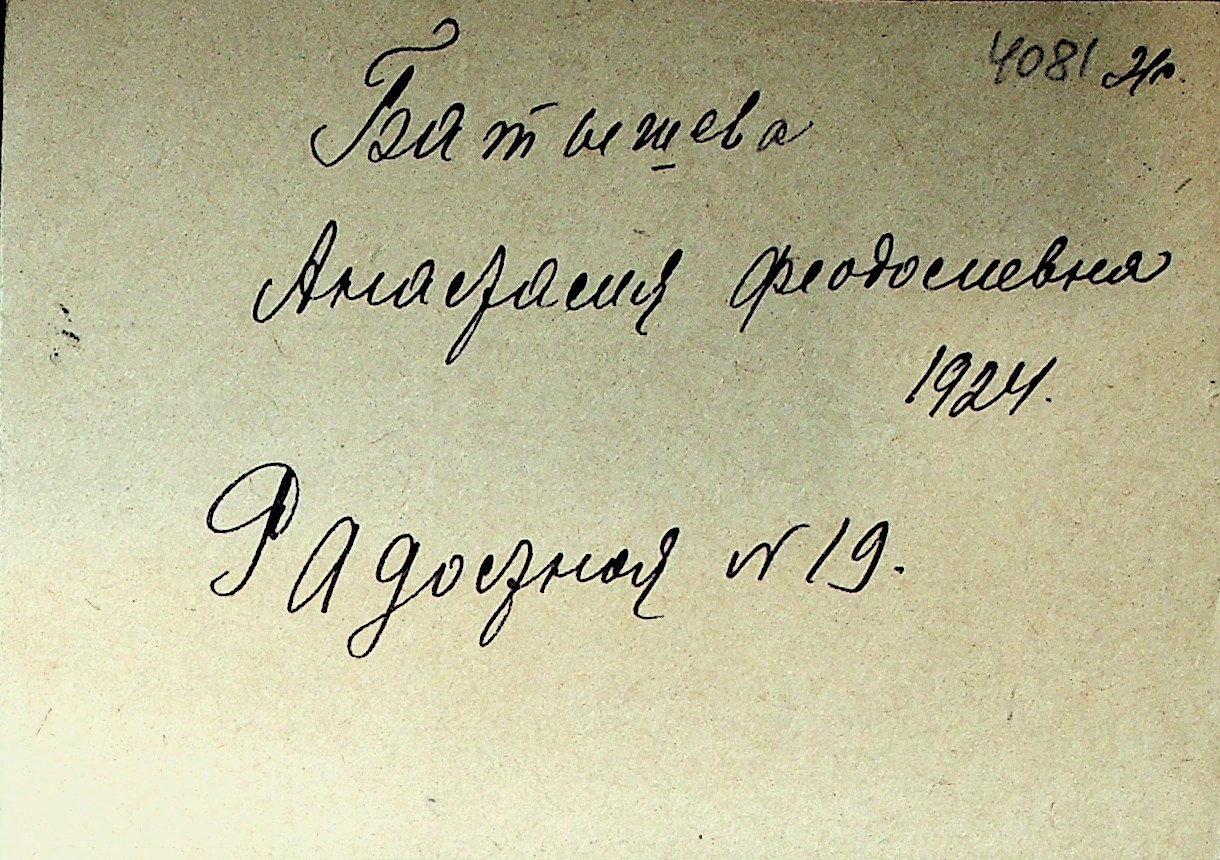 4081 2гр.
Батышева
Анастасия Феодосиевна
1924.
Радостная N 19.